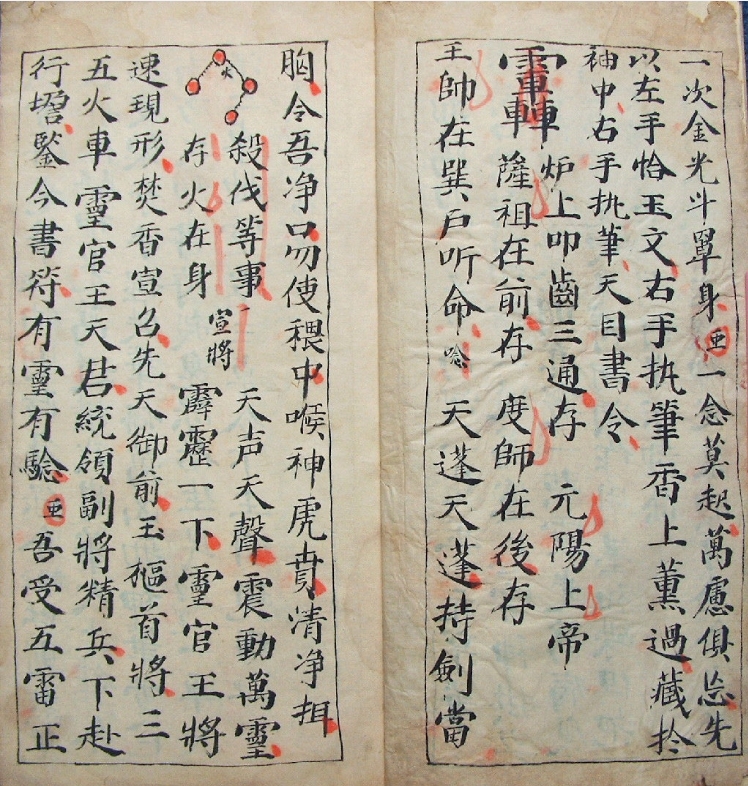 一次金光斗罩身 一念莫起萬慮俱忘先
以左手恰玉文右手执筆香上薰過藏扵
袖中右手执筆天目書令
炉上叩齒三通存 元陽上帝
薩祖在前存 度師在後存
王帥在巽户听命 天蓬天蓬持劍當
胸令吾净口勿使穢中喉神虎賁清净
火
殺伐等事 天声天聲震動萬靈
存火在身 宣將 霹靂一下靈官王將
速現形焚香宣召先天御前玉樞首將三
五火車靈官王天君統領副將精兵下赴
行壇鑒今書符有靈有驗 吾受五雷正